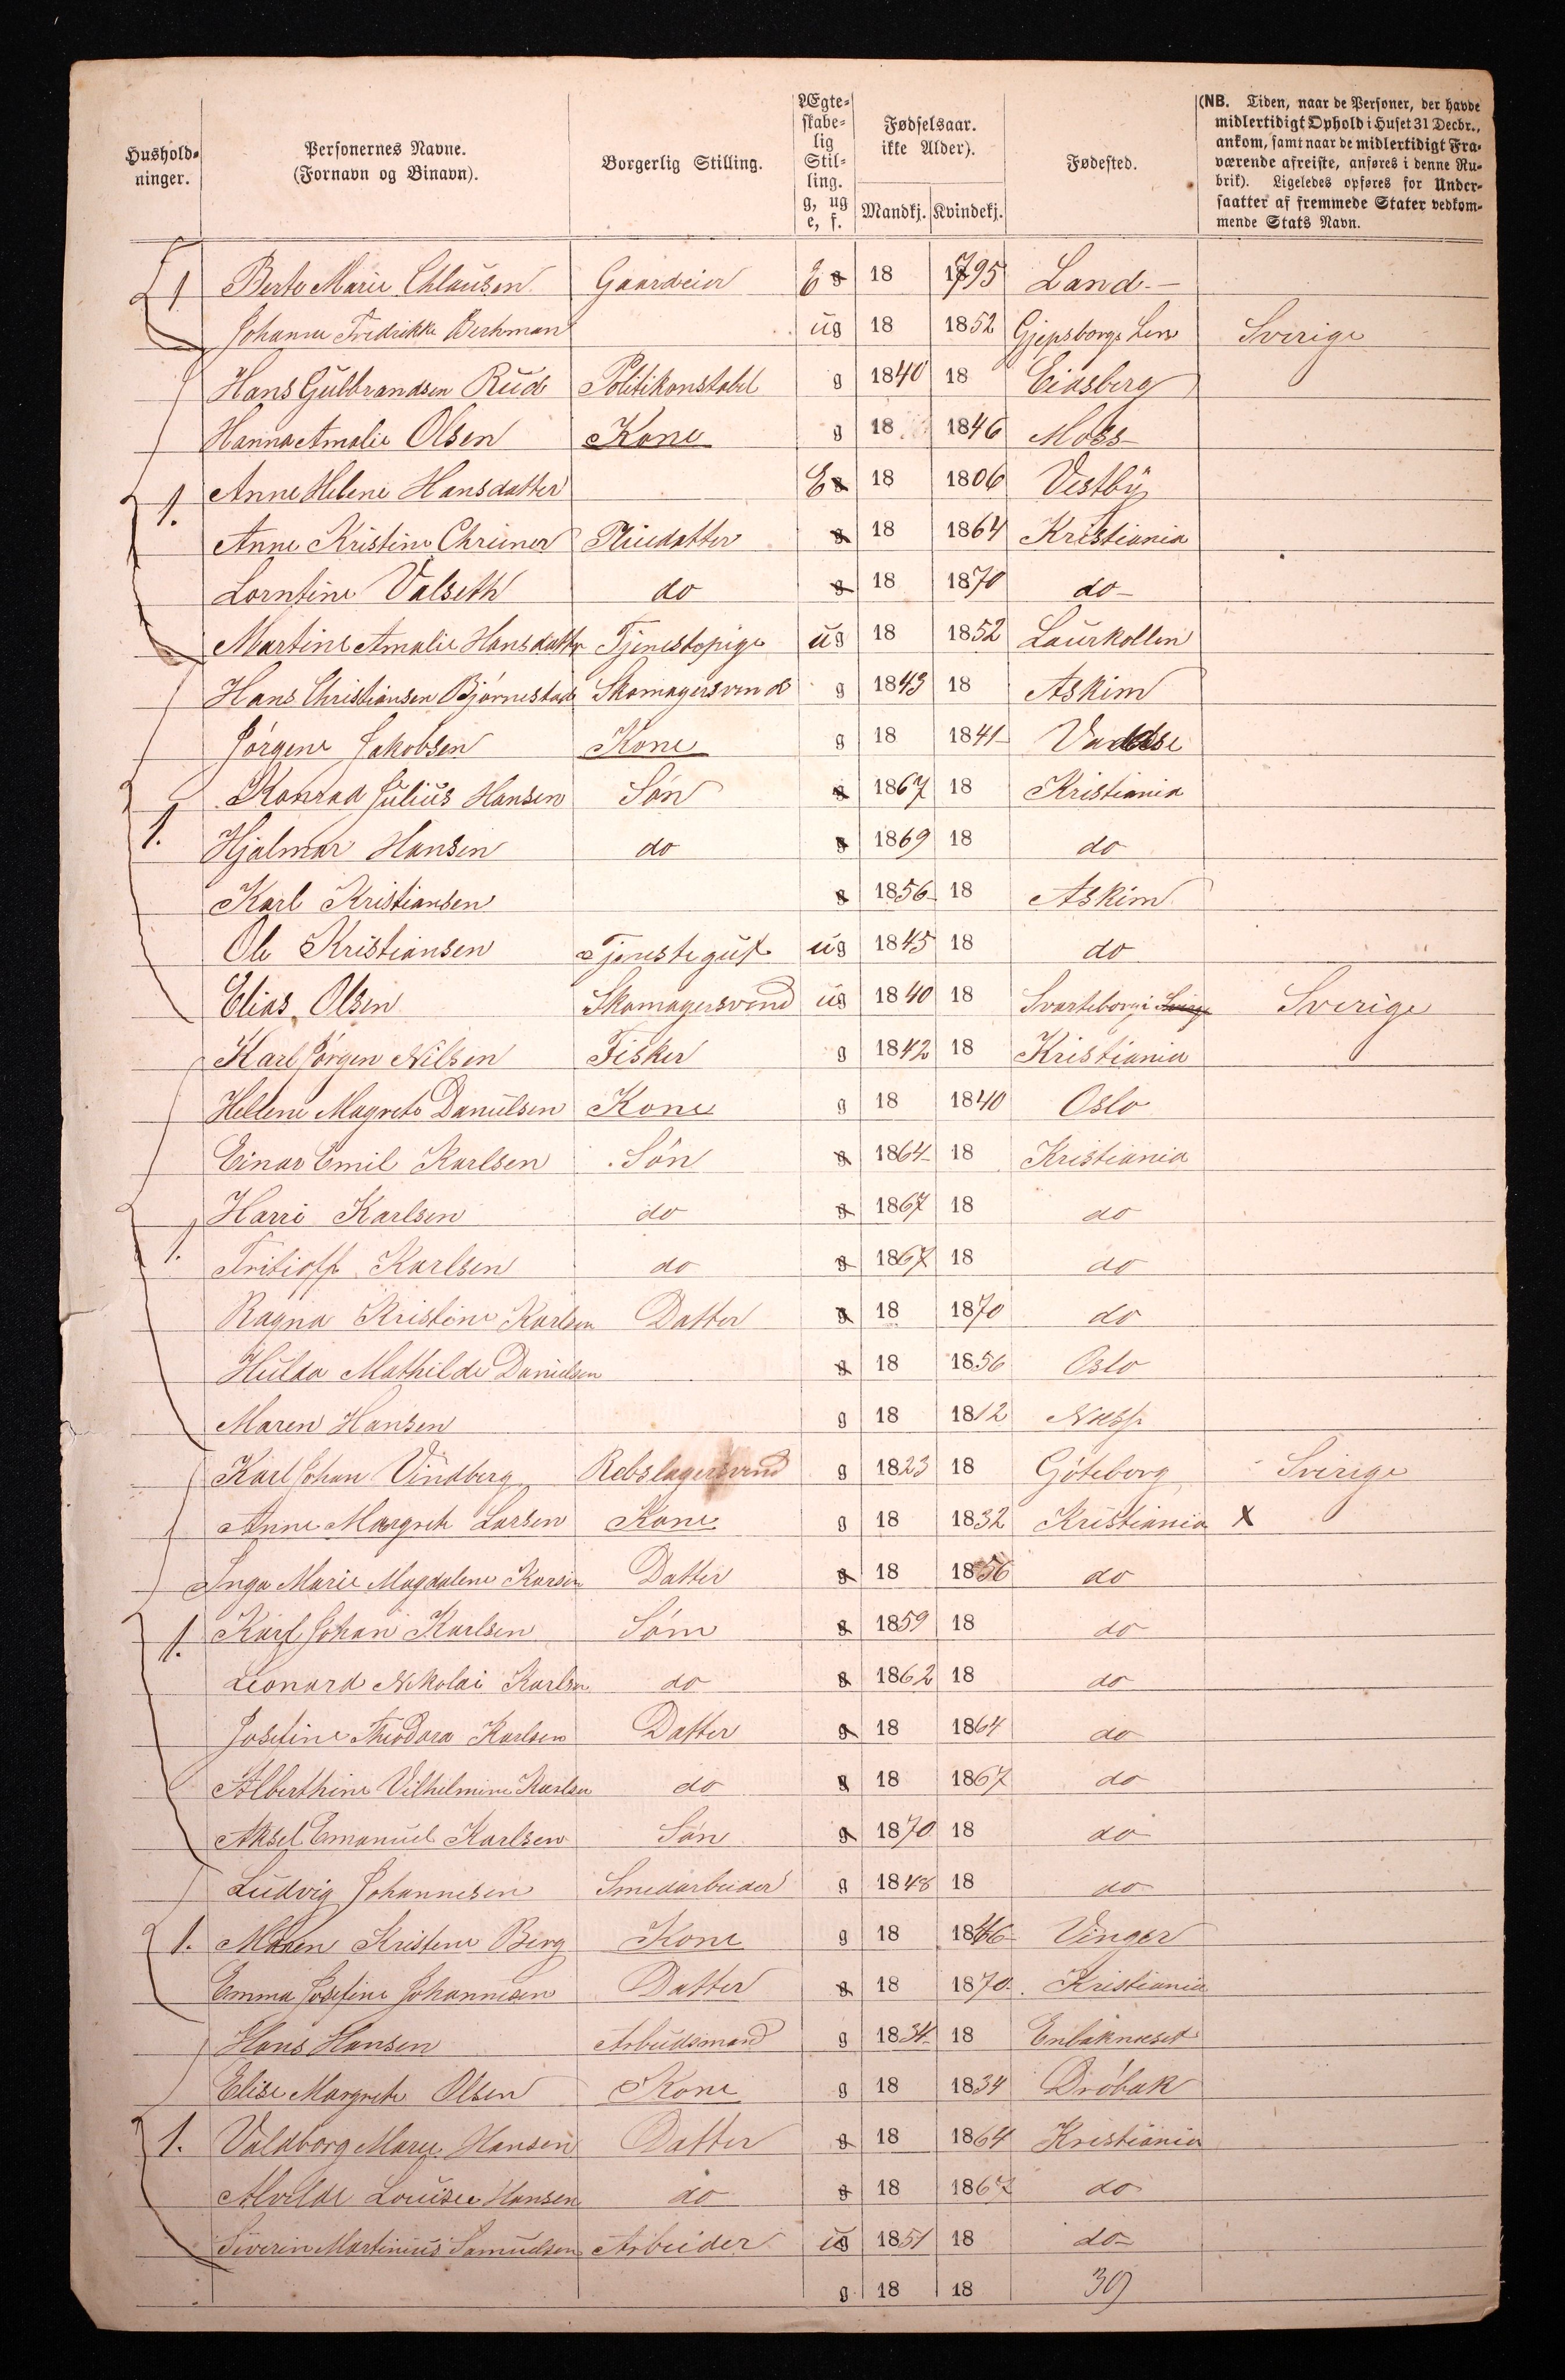 Hushold-
ninger.
Personernes Navne.
(Fornavn og Binavn).
Borgerlig Stilling.
Ægte-
skabe-
lig
Stil-
ling.
g, ug
e, f.
Fødselsaar.
ikke Alder).
Mandkj. Kvindekj.
Fødested.
(NB. Tiden, naar de Personer, der havde
midlertidigt Ophold i Huset 31 Decbr.,
ankom, samt naar de midlertidigt Fra-
værende afreiste, anføres i denne Ru-
brik). Ligeledes opføres for Under-
saatter af fremmede Stater vedkom-
mende Stats Navn.
1 Berte Marie Chlausen Gaardeier E g 18 1795 Land
Johanne Fredrikke ug 18 1852 Len Sverige
Hans Gulbrandsen Rud Politikonstabel g 1840 18 Eidsberg
Hanna Amalie Olsen Kone g 18 1846 Moss
Anne Helene Hansdatter E g 18 1806 Vestby
1. Anne Kristine Pliedatter g 18 1864 Kristiania
Lorntine Valseth do g 18 1870 do
Martine Amalie Hansdatter Tjenestepige ug 18 1852 Laurkollen
Hans Christiansen Bjørnestad Skomagersvend g 1843 18 Askim
Jørgene Jakobsen Kone g 18 1841
Konrad Julius Hansen Søn g 1867 18 Kristiania
1. Hjalmar Hansen do g 1869 18 do
Karl Kristiansen g 1856 18 Askim
Ole Kristiansen Tjenestegut ug 1845 18 do
Elias Olsen Skomagersvend ug 1840 18 Svarteborg i Sverige Sverige
Karl Jørgen Nilsen Fisker g 1842 18 Kristiania
Hellene Magrete Danielsen Kone g 18 1840 Oslo
Einar Emil Karlsen Søn g 1864 18 Kristiania
Harri Karlsen do g 1867 18 do
1. Fritioff Karlsen do g 1867 18 do
Ragna Kristine Karlsen Datter g 18 1870 do
Hulda Mathilde Danielsen g 18 1856 Oslo
Maren Hansen g 18 1812
Karl Johan Vindberg Rebslagersvend g 1823 18 Göteborg Sverige
Anne Margrete Larsen Kone g 18 1832 Kristiania X
Inga Marie Magdalene g 18 1856 do
Datter
1. Karl Johan Karlsen Søm g 1859 18 do
Leonard Nikolai Karlsen do g 1862 18 do
Josefine Theodora Karlsen Datter g 18 1864 do
Alberthine Vilhelmine Karlsen do g 18 1867 do
Aksel Emanuel Karlsen Søn g 1870 18 do
Ludvig Johannesen Smedarbeider g 1848 18 do
1. Maren Kristine Berg Kone g 18 1846 Vinger
Emma Josefine Johannesen Datter g 18 1870 Kristiania
Hans Hansen Arbeidsmand g 1834 18 Enbaknæset
Elise Margrete Olsen Kone g 18 1834 Drøbak
1. Valdborg Marie Hansen Datter g 18 1864 Kristiania
Alvilde Louise Hansen do g 18 1867 do
Siverin Martinius Samuelsen Arbeider ug 1851 18 do
g 18 18 39